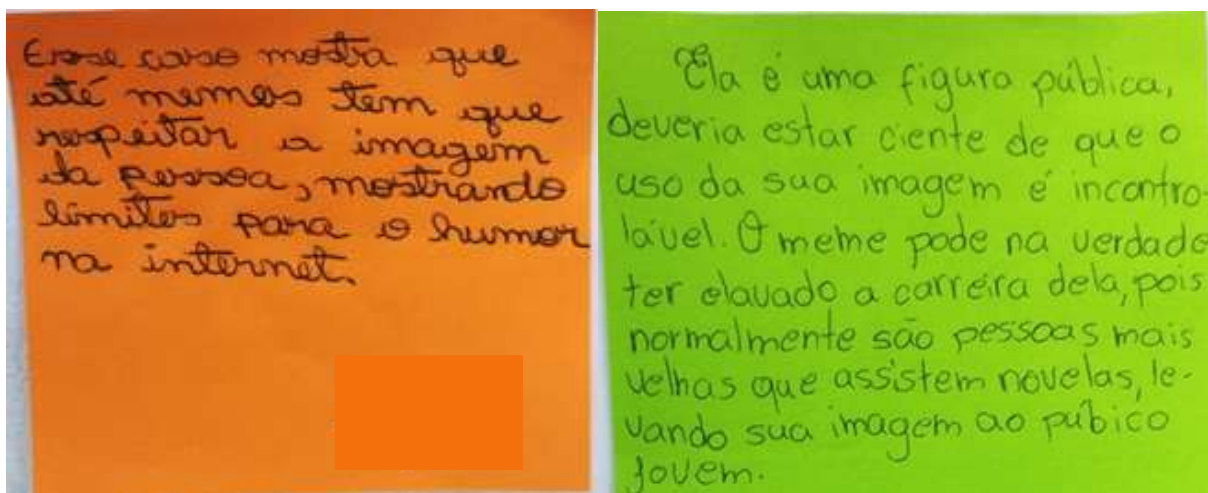 Esse caso mostra que
até memes tem que
respeitar a imagem
da pessoa, mostrando
limites para o humor
na internet.
Ela é uma figura pública,
deveria estar ciente de que o
uso da sua imagem é incontro-
lável. O meme pode na verdade
ter elavado a carreira dela, pois
normalmente são pessoas mais
velhas que assistem novelas, le-
vando sua imagem ao púbico
jovem.